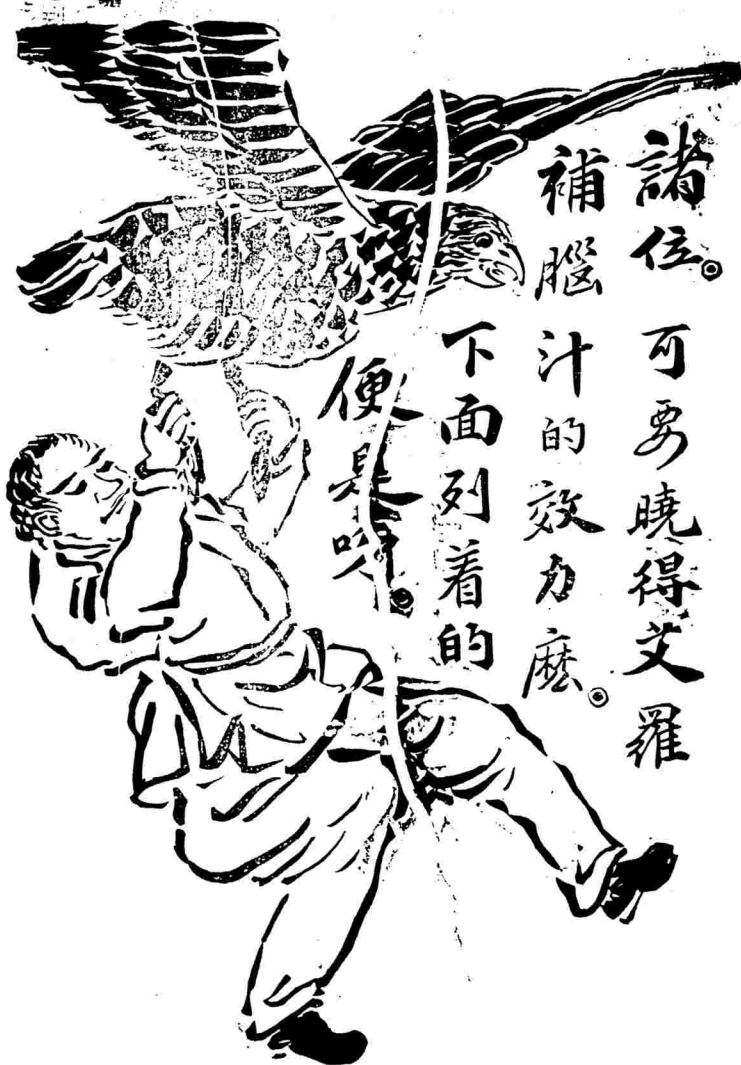 諸位。可要曉得艾羅
補腦汁的效力麼。
下面列着的
便是呀。